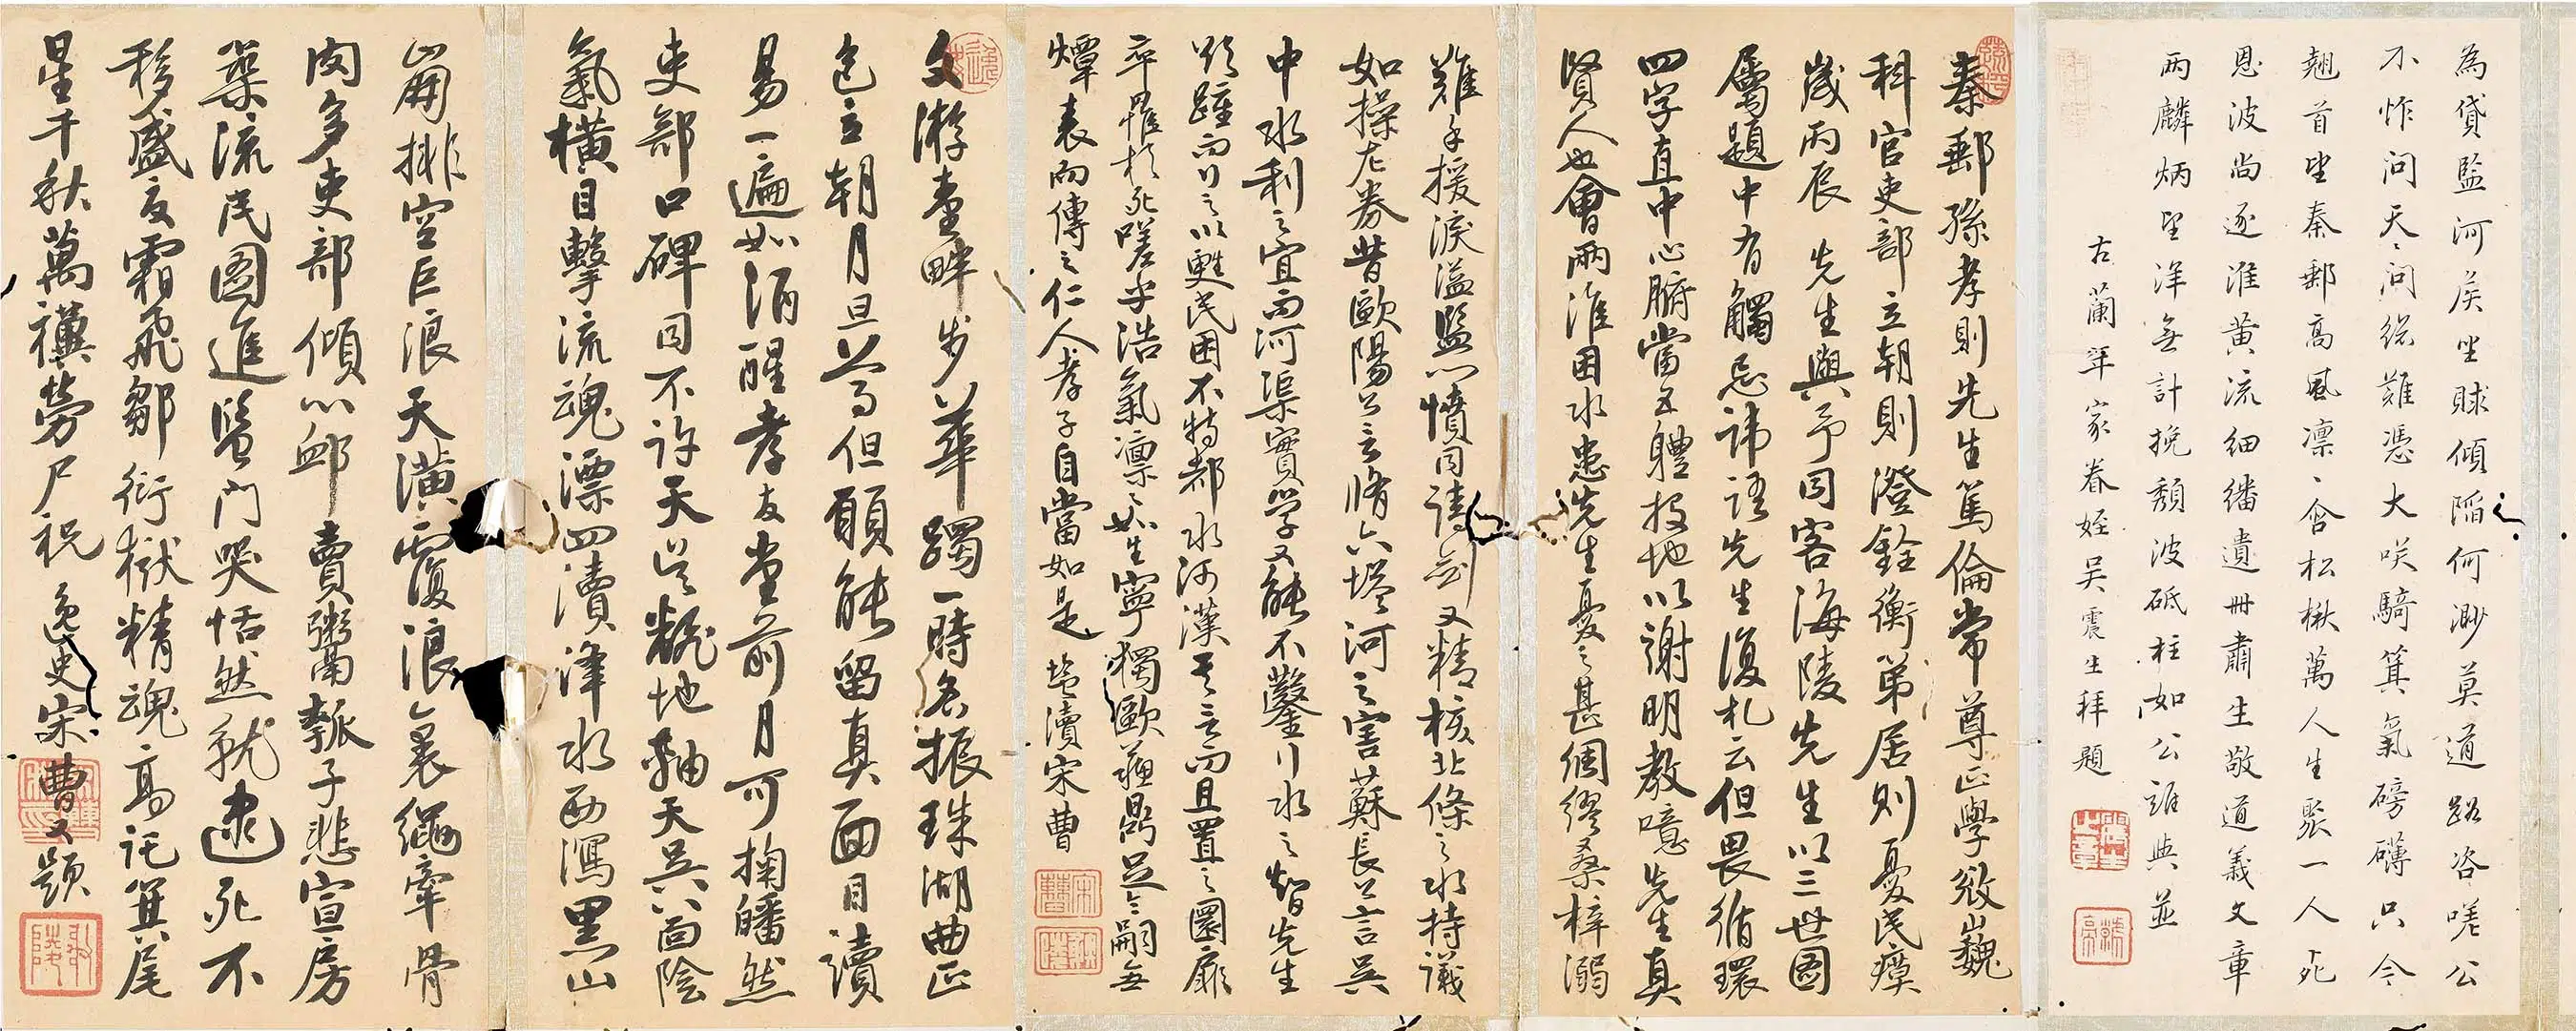 為貸監河侯坐賕傾陷何渺莫道路咨嗟公
不怍問天天問總難憑大咲騎箕氣磅礴只今
翹首望秦郵高風凛凛含松楸萬人生聚一人死
恩波尚逐淮黄流細繙遺冊肅生敬道義文章
兩麟炳望洋無計挽頹波砥柱如公誰與並
古蘭年家眷姪吴震生拜題
秦郵孫孝則先生篤倫常尊正學發巍
科官吏部立朝則澄銓衡第居則憂民瘼
歲丙辰先生與予同客海陵先生以三世圖
屬題中有觸忌諱語先生復札云但畏循環
四字直中心腑當五體投地以謝明教噫先生真
賢人也會兩淮困水患先生憂之甚綢繆桑梓溺
難手援淚溢監心憤同請劍又精核北條之水持議
如操左券昔歐陽公言脩六塔河之害蘇長公言吴
中水利之宜而河渠實學又能不鑿行水之智先生
欲踵而行之以甦民困不特都水河漢其言而且置之圜扉
卒罹於死嗟乎浩氣凛凛如生寧獨歐蘇鼎足令嗣無
燂表而傳之仁人孝子自當如是 塩瀆宋曹
文游臺畔步華躅一時名振珠湖曲正
色立朝月旦公予但願能留真面目讀
易一遍如酒醒孝友堂前月可掬皤然
吏部口碑同不許天吴翻地軸天吴八面陰
氣橫目擊流魂漂四瀆洚水西瀉黑山
崩排空巨浪天潢覆浪裏繩牽骨
肉多吏部傾心卹賣粥鬻瓠子悲宣房
築流民圖進監門哭恬然就逮死不
移盛夏霜飛鄒衍獄精魂高託箕尾
星千秋萬禩勞尸祝 逸史宋曹又題